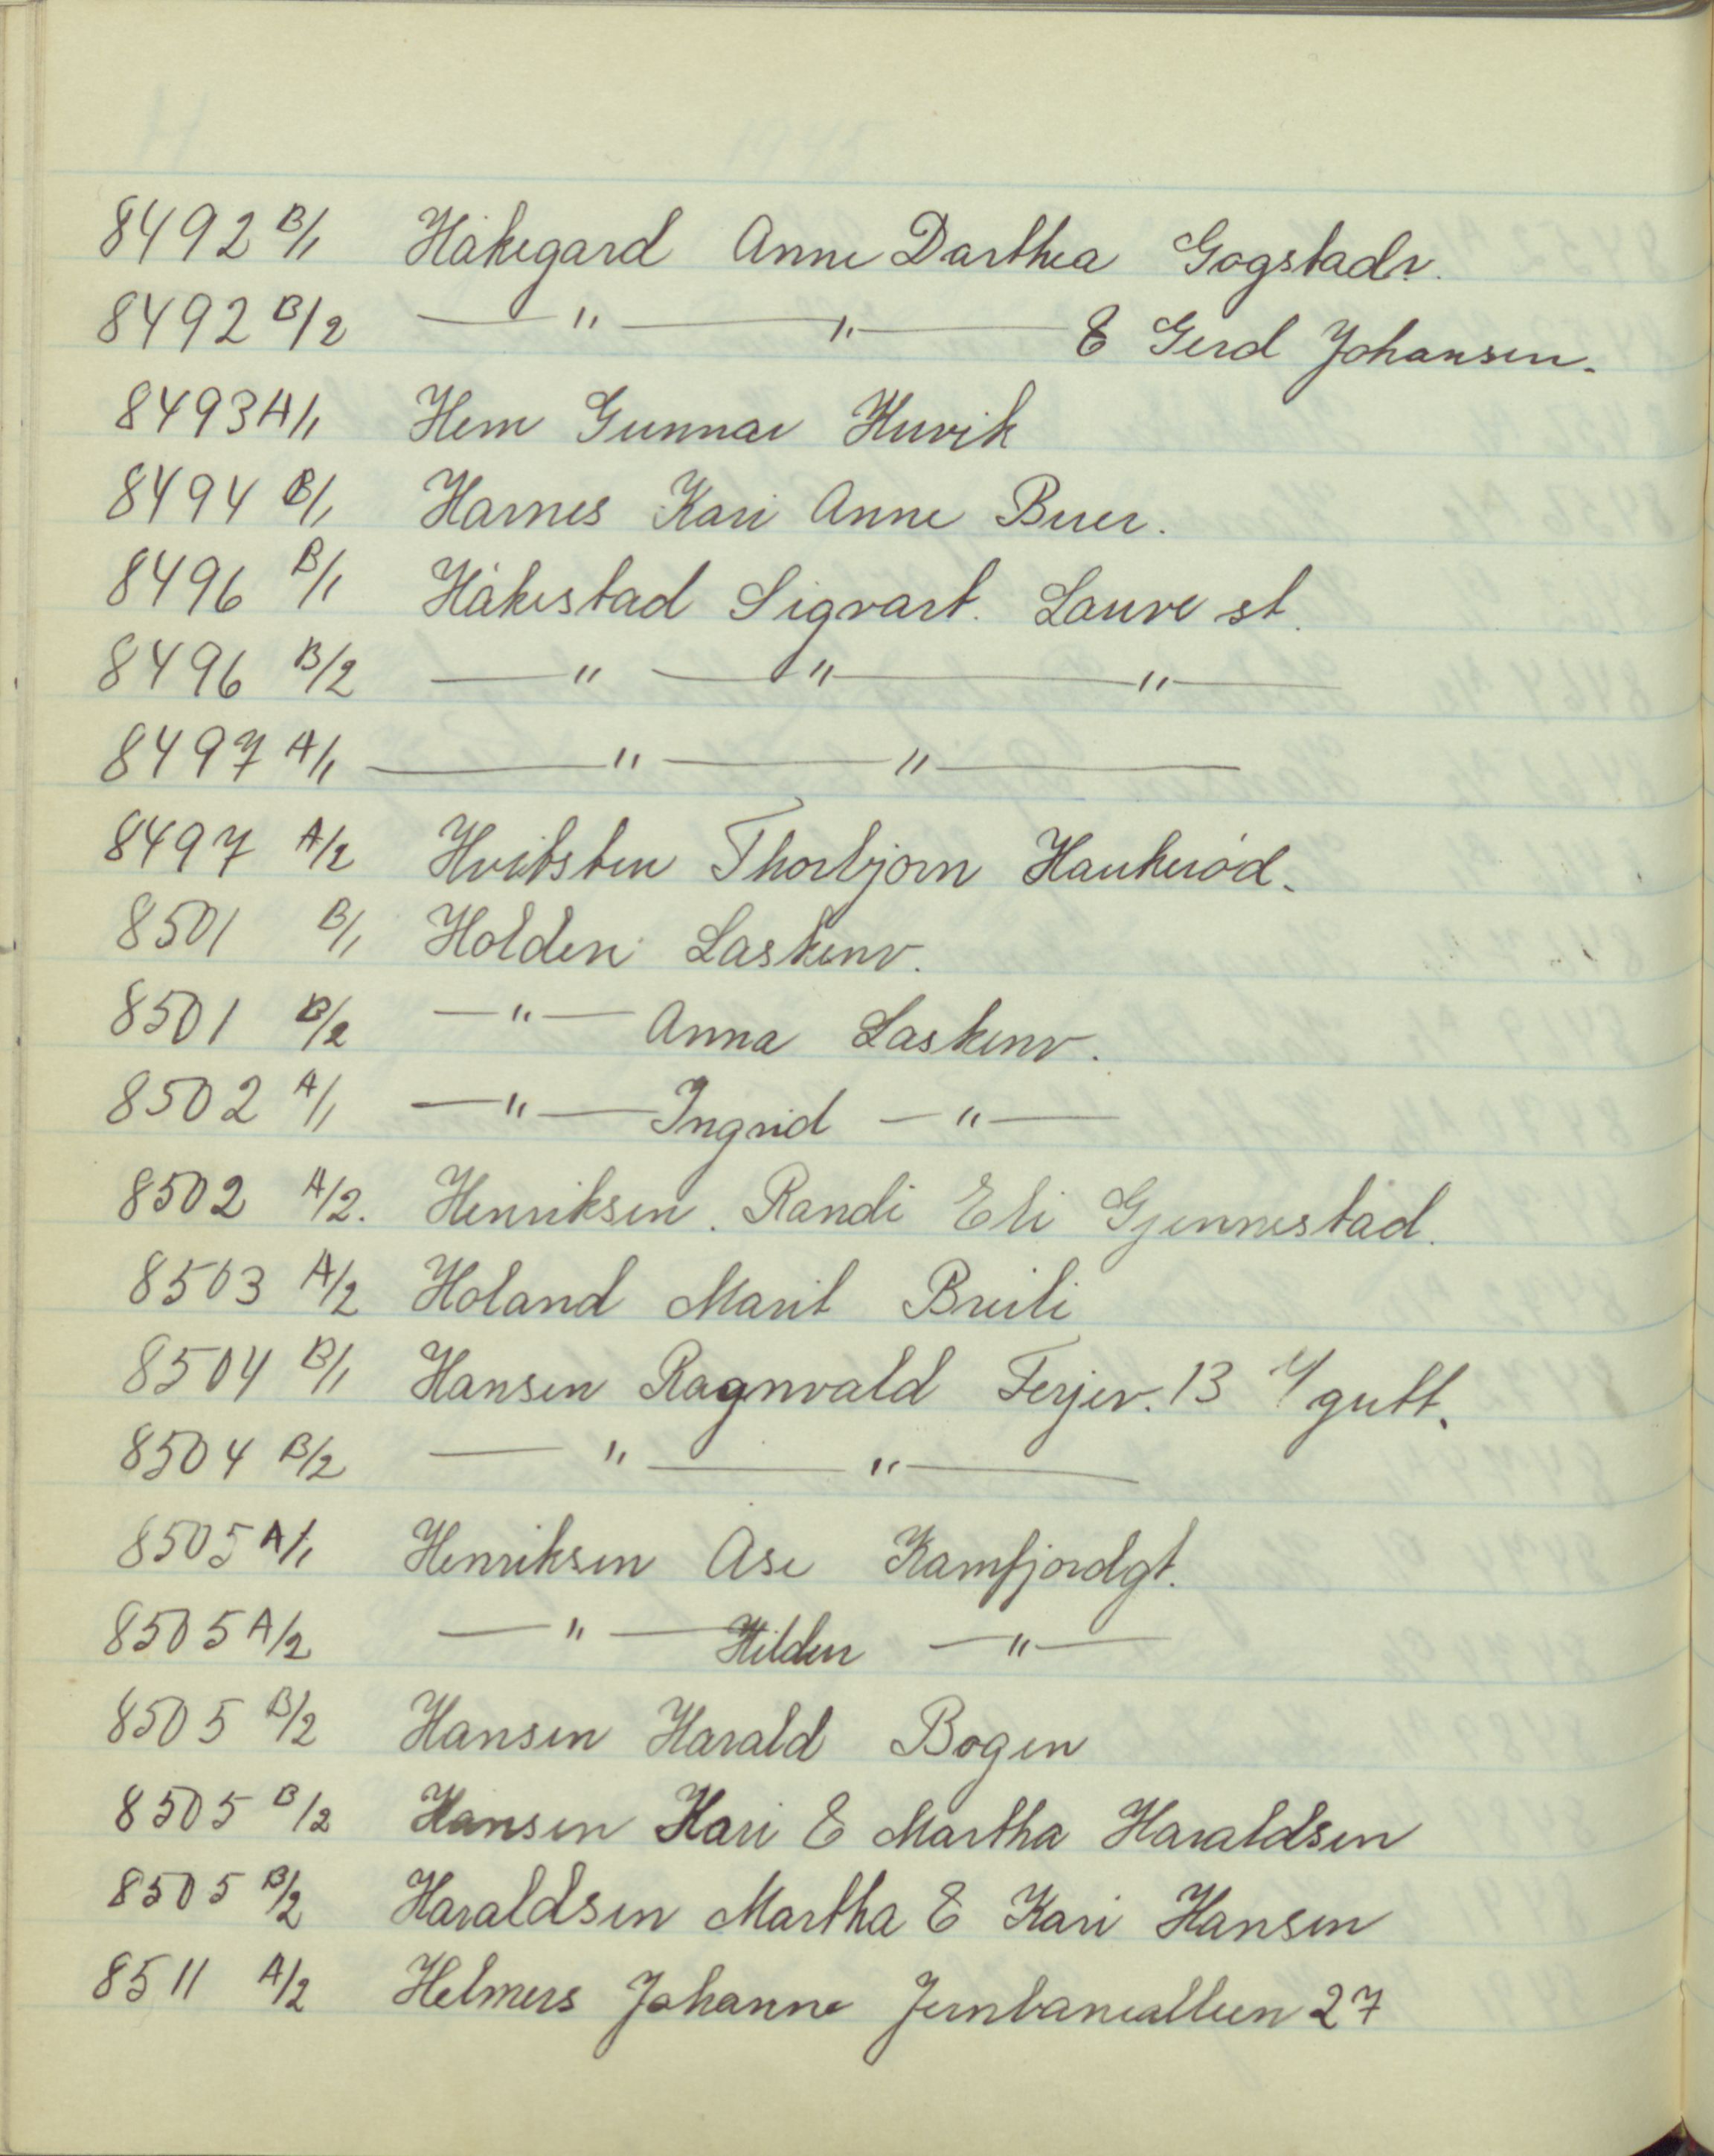 8492 B/1 Håkegard Anne Darthea Gogstadv.
8492 B/2 —"— —"— & Gerd Johansen.
8493 A/1 Hem Gunnar Huvik
8494 B/1 Harnes Kari Anne Buer.
8496 B/1 Håkestad Sigvart. Lauve st.
8496 B/2 —"— —"— —"—
8497 A/1 —"— —"—
8497 A/2 Hvitsten Thorbjørn Haukerød.
8501 B/1 Holden Laskenv.
8501 B/2 —"— Anna Laskenv.
8502 A/1 —"— Ingrid —"—
8502 A/2. Henriksen. Randi Eli Gjennestad.
8503 A/2 Holand Marit Breili
8504 B/1 Hansen Ragnvald Ferjev. 13 4/gutt.
8504 B/2 —"— —"—
8505 A/1 Henriksen Åse Kamfjordgt.
8505 A/2 —"— Hilden —"—
8505 B/2 Hansen Harald Bogen
8505 B/2 Hansen Kari & Martha Haraldsen
8505 B/2 Haraldsen Martha & Kari Hansen
8511 A/2 Helmers Johanne Jernbanealleen 27